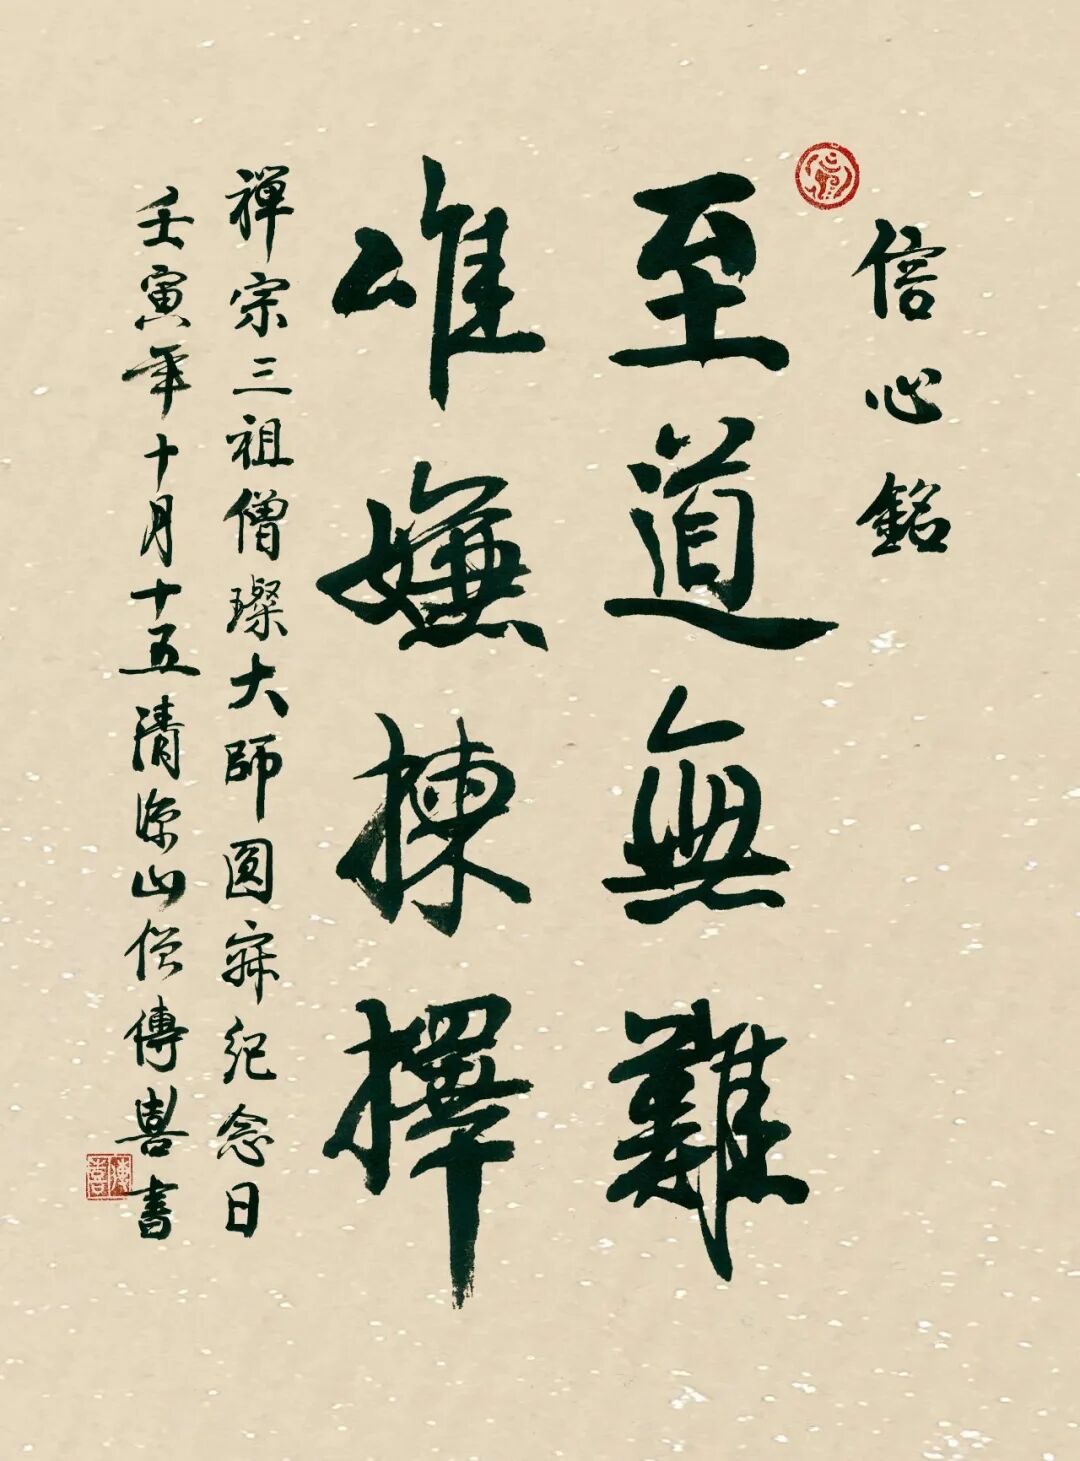 信心銘
至道無難
唯嫌揀擇
禪宗三祖僧璨大師圓寂紀念日
壬寅年十月十五清源山僧傳喜書
傳喜